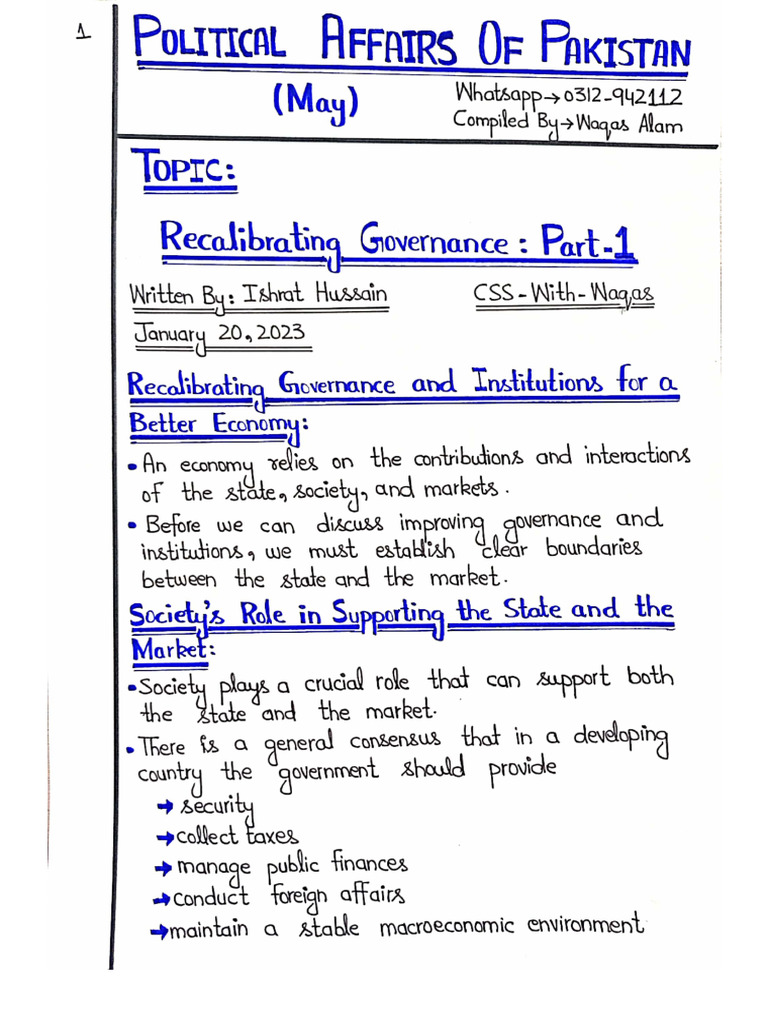 1
POLITICAL AFFAIRS OF PAKISTAN
(May)
Whatsapp→0312-942112
Compiled By→Waqas Alam
TOPIC:
Recalibrating Governance: Part-1
Written By: Ishrat Hussain
CSS-With-Waqas
January 20, 2023
Recalibrating Governance and Institutions for a
Better Economy:
• An economy relies on the contributions and interactions
of the state, society, and markets.
• Before we can discuss improving governance and
institutions, we must establish clear boundaries
between the state and the market.
Society's Role in Supporting the State and the
Market:
• Society plays a crucial role that can support both
the state and the market.
• There is a general consensus that in a developing
country the government should provide
→ security
→ collect taxes
→ manage public finances
→ conduct foreign affairs
→ maintain a stable macroeconomic environment